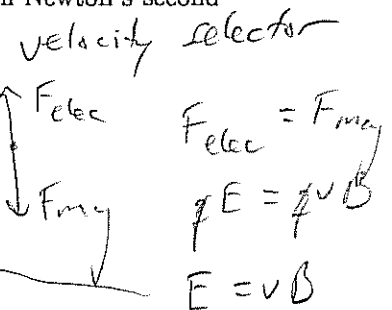 n Newton's second
velocity selector
F_elec
F_elec = F_mag
F_mag
qE = qvB
E = vB